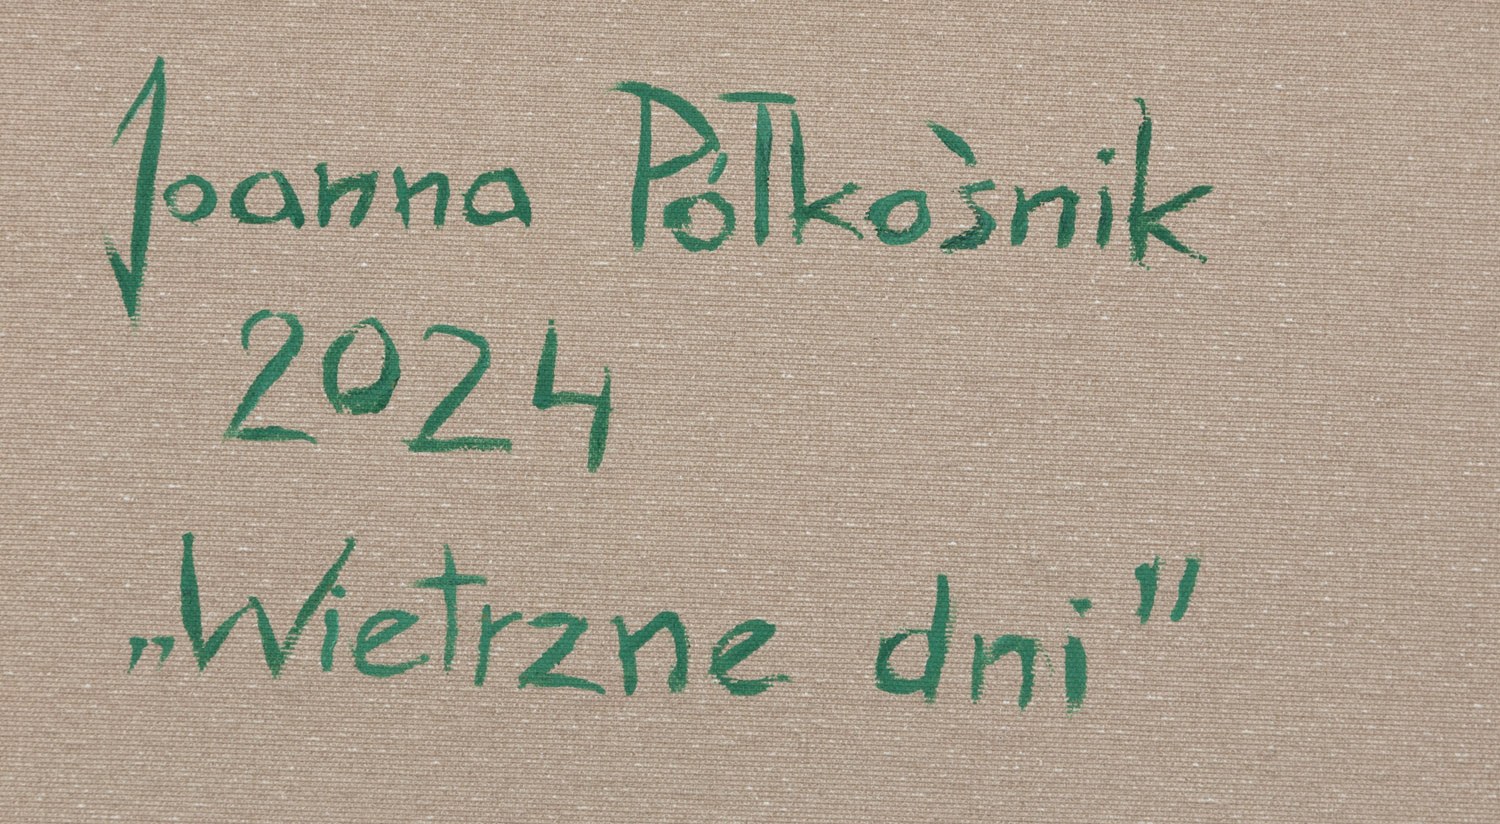 Joanna Półkośnik
2024
„Wietrzne dni”